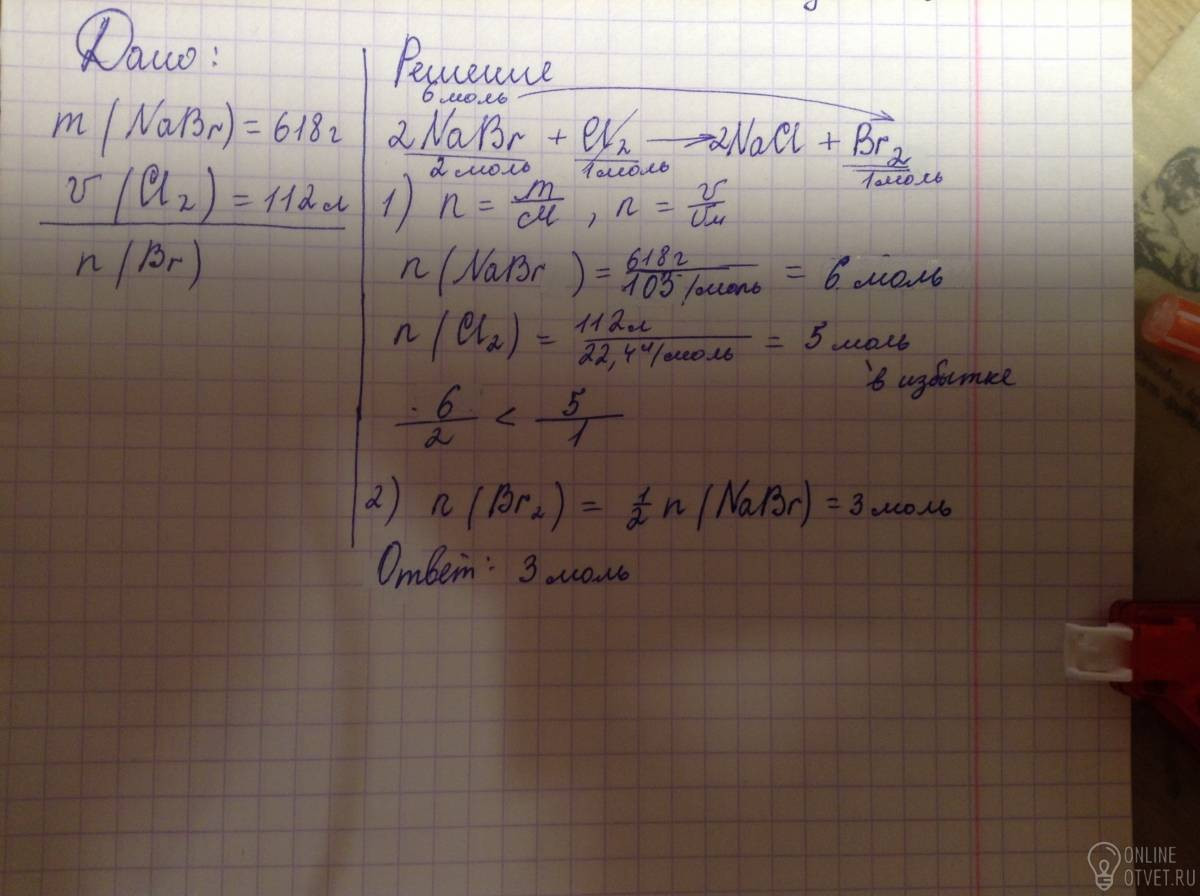 Дано:
m (NaBr) = 618г
V (Cl2) = 112л
n (Br)
Решение
6 моль
2NaBr + Cl2 → 2NaCl + Br2
2 моль 1моль 1моль
1) n = m/M , n = V/Vм
n (NaBr ) = 618г/103г/моль = 6 моль
n (Cl2) = 112л/22,4л/моль = 5 моль
в избытке
6/2 < 5/1
2) n (Br2) = 1/2 n (NaBr) = 3 моль
Ответ: 3 моль
ONLINE
OTVET.RU